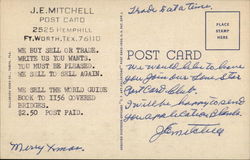 J.E. MITCHELL
POST CARD
2525 HEMPHILL
FT. WORTH, TEX. 76110
WE BUY SELL OR TRADE.
WRITE US YOU WANTS.
YOU MUST BE PLEASED.
WE SELL TO SELL AGAIN.
WE SELL THE WORLD GUIDE
BOOK TO 1156 COVERED
BRIDGES.
$2.50 POST PAID.
Merry Xmas
Trade
POST CARD
PLACE
STAMP
HERE
We would like to have
you join our Lone Star
Post Card Club.
I will be happy to send
you application blank.
J E Mitchell